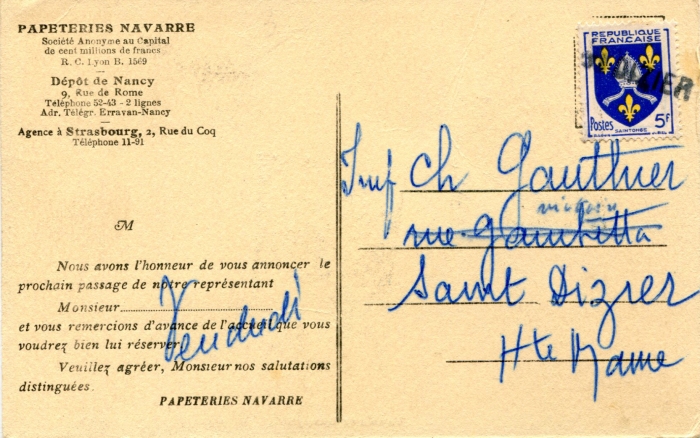 PAPETERIES NAVARRE
Société Anonyme au Capital
de cent millions de francs
R. C. Lyon B. 1569
Dépôt de Nancy
9, Rue de Rome
Téléphone 52-43 - 2 lignes
Adr. Télégr. Erravan-Nancy
Agence à Strasbourg, 2, Rue du Coq
Téléphone 11-91
M
Nous avons l'honneur de vous annoncer le
prochain passage de notre représentant
Monsieur
Vendredi
et vous remercions d'avance de l'accueil que vous
voudrez bien lui réserver.
Veuillez agréer, Monsieur nos salutations
distinguées.
PAPETERIES NAVARRE
REPUBLIQUE
FRANÇAISE
Postes
5F
SAINTONGE
DIZIER
Imp Ch Gauthier
rue Gambetta
Saint Dizier
Hte Marne